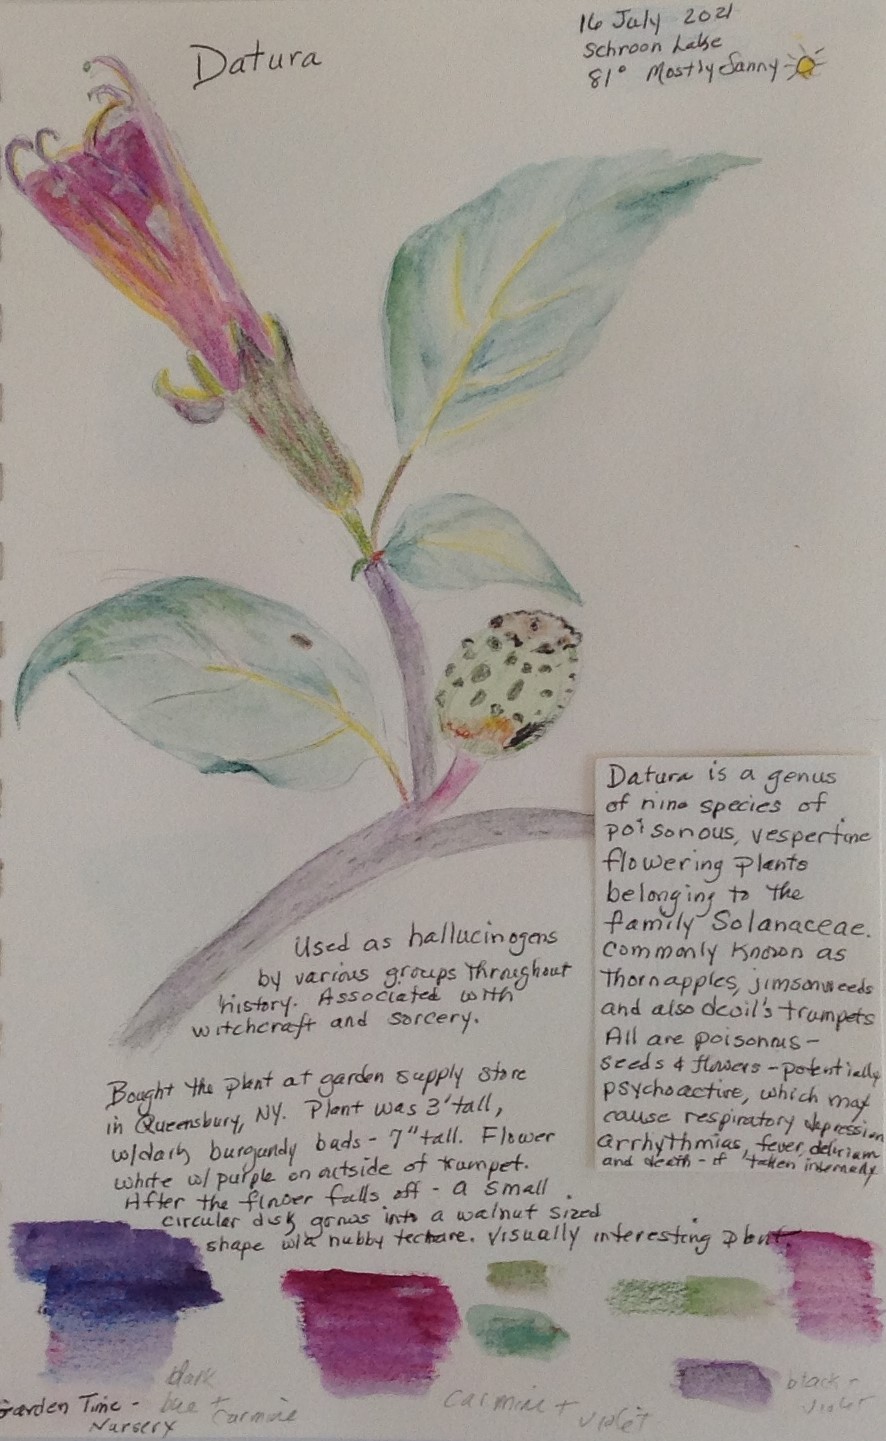 Datura
16 July 2021
Schroon Lake
81° Mostly Sunny
Datura is a genus
of nine species of
poisonous, vespertine
flowering plants
belonging to the
family Solanaceae.
Commonly known as
thornapples, jimsonweeds
and also devil's trumpets
All are poisonous -
seeds & flowers - potentially
psychoactive, which may
cause respiratory depression
arrhythmias, fever, delirium
and death - if taken internally
Used as hallucinogens
by various groups throughout
history. Associated with
witchcraft and sorcery.
Bought the plant at garden supply store
in Queensbury, NY. Plant was 3' tall,
w/dark burgundy buds - 7" tall. Flower
white w/ purple on outside of trumpet.
After the flower falls off - a small
circular disk grows into a walnut sized
shape w/a nubby texture. Visually interesting plant.
Garden Time -
Nursery
dark
blue +
Carmine
Carmine +
violet
black +
violet